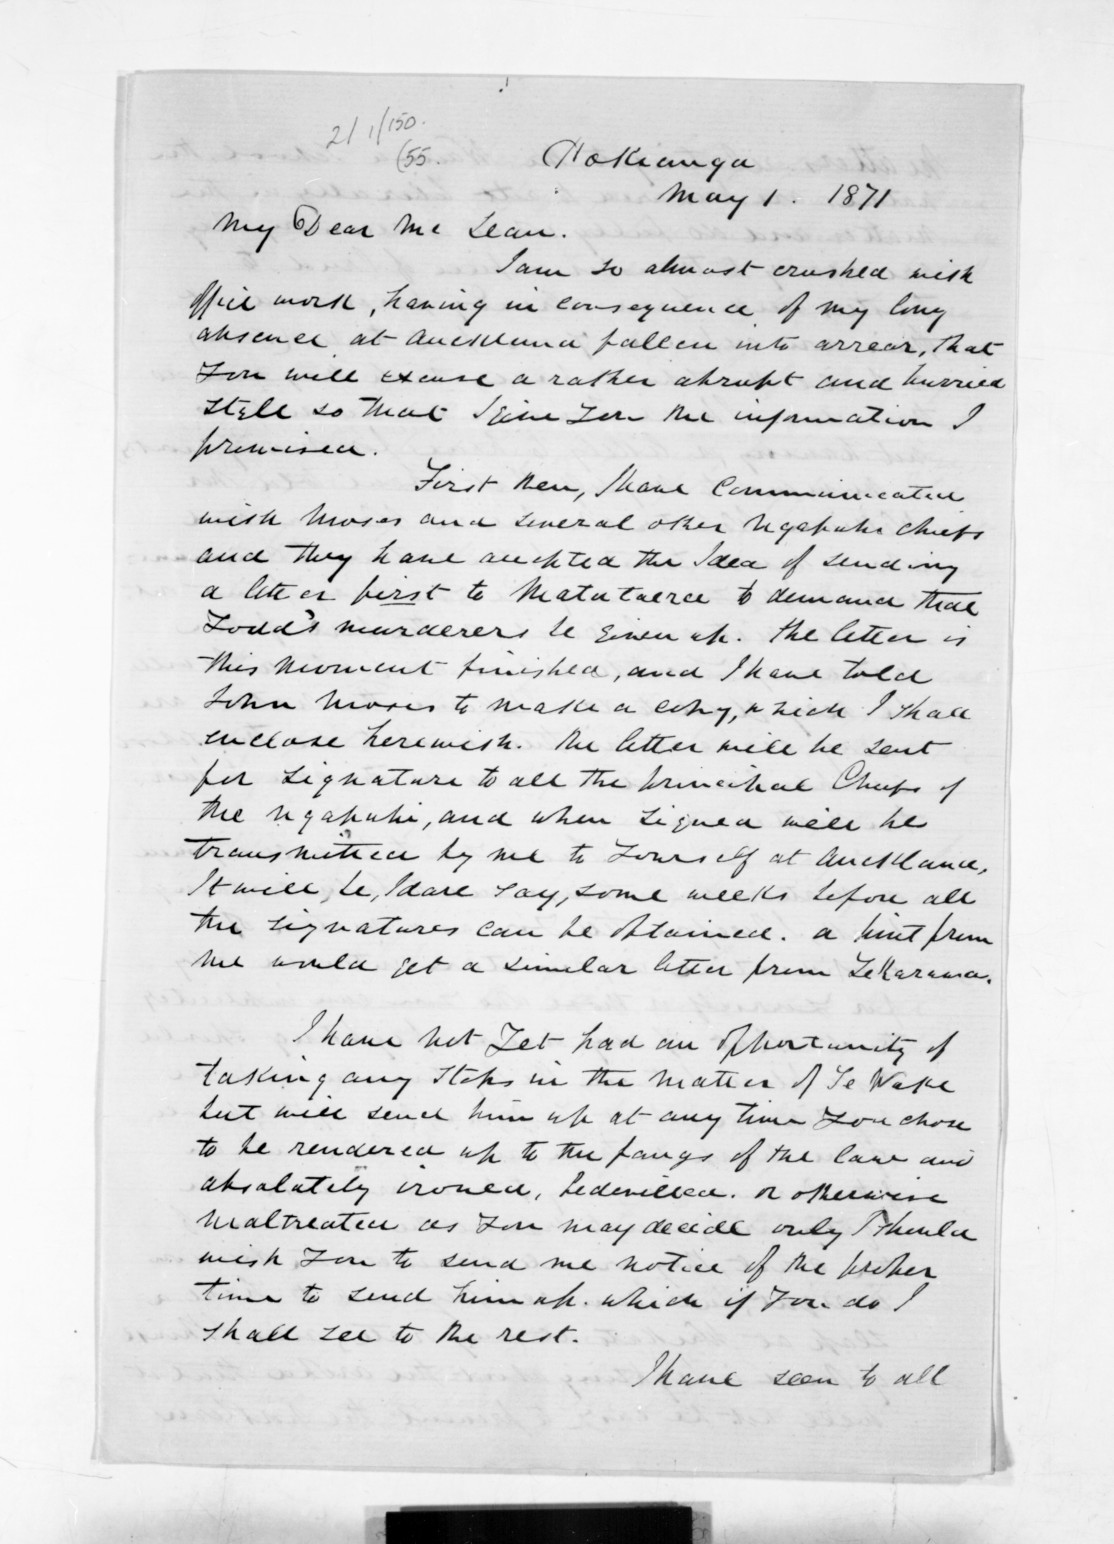 2/ 1/150.
(55.
Hokianga
May 1. 1871
My Dear Mc Lean.
I am so almost crushed with
office work, having in consequence of my long
absence at Auckland fallen into arrear, that
you will excuse a rather abrupt and hurried
style so that I give you the information I
promised.
First then, I have communicated
with Moses and several other Ngapuhi chiefs
and they have accepted the Idea of sending
a letter first to Matutaera to demand that
Todd's murderers be given up. the letter is
this moment finished, and I have told
John Moses to make a copy, which I shall
enclose herewith. the letter will be sent
for signature to all the principal Chiefs of
the Ngapuhi, and when signed will be
transmitted by me to yourself at Auckland,
It will, be, I dare say, some weeks before all
the signatures can be obtained. a hint from
me would get a similar letter from Te Rarawa.
I have not yet had an opportunity of
taking any steps in the matter of Te Wake
but will send him up at any time you chose
to be rendered up to the fangs of the law and
absolutely ironed, bedevilled. or otherwise
maltreated as you may decide only I should
wish you to send me notice of the proper
time to send him up. which if you do I
shall see to the rest.
I have seen to all